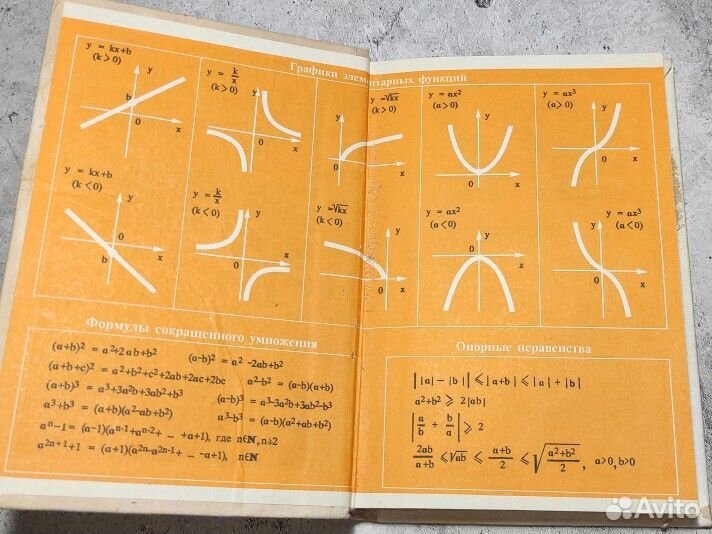 Графики элементарных функций
y = kx+b
(k>0)
y
b
0
x
y = k/x
(k>0)
y
0
x
y =√kx
(k>0)
y
0
x
y = ax²
(a>0)
y
0
x
y = ax³
(a>0)
y
0
x
y = kx+b
(k<0)
y
0
b
x
y = k/x
(k<0)
y
0
x
y =√kx
(k<0)
y
0
x
y = ax²
(a<0)
y
0
x
y = ax³
(a<0)
y
0
x
Формулы сокращенного умножения
(a+b)² = a²+2ab+b²
(a-b)² = a² -2ab+b²
(a+b+c)² = a²+b²+c²+2ab+2ac+2bc
a²-b² = (a-b)(a+b)
(a+b)³ = a³+3a²b+3ab²+b³
(a-b)³ = a³-3a²b+3ab²-b³
a³+b³ = (a+b)(a²-ab+b²)
a³-b³ = (a-b)(a²+ab+b²)
aⁿ-1 = (a-1)(aⁿ⁻¹+aⁿ⁻²+ ... +a+1), где n∈N, n≥2
a²ⁿ⁺¹+1 = (a+1)(a²ⁿ-a²ⁿ⁻¹+ ... -a+1), n∈N
Опорные неравенства
||a| − |b|| ⩽ |a+b| ⩽ |a| + |b|
a²+b² ⩾ 2|ab|
|a/b + b/a| ⩾ 2
2ab/(a+b) ⩽ √ab ⩽ (a+b)/2 ⩽ √((a²+b²)/2), a>0, b>0
Avito